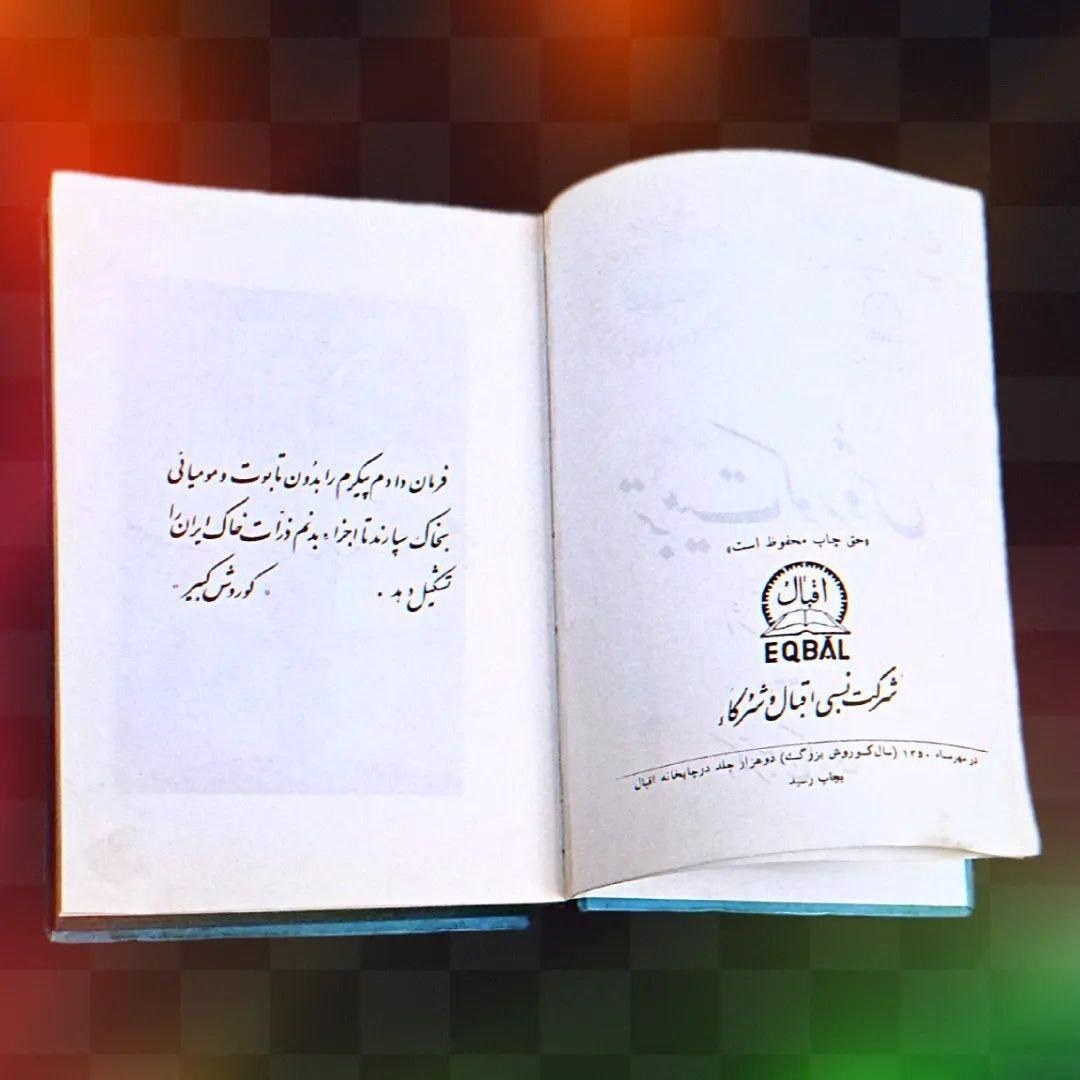 «حق چاپ محفوظ است»
اقبال
EQBAL
شرکت نسبی اقبال و شرکاء
در مهرماه ۱۳۵۰ (سال کوروش بزرگ) دوهزار جلد درچاپخانه اقبال
بچاپ رسید
فرمان دادم پیکرم را بدون تابوت و مومیائی
بخاک سپارند تا اجزاء بدنم ذرّات خاک ایران را
تشکیل دهد . « کوروش کبیر »